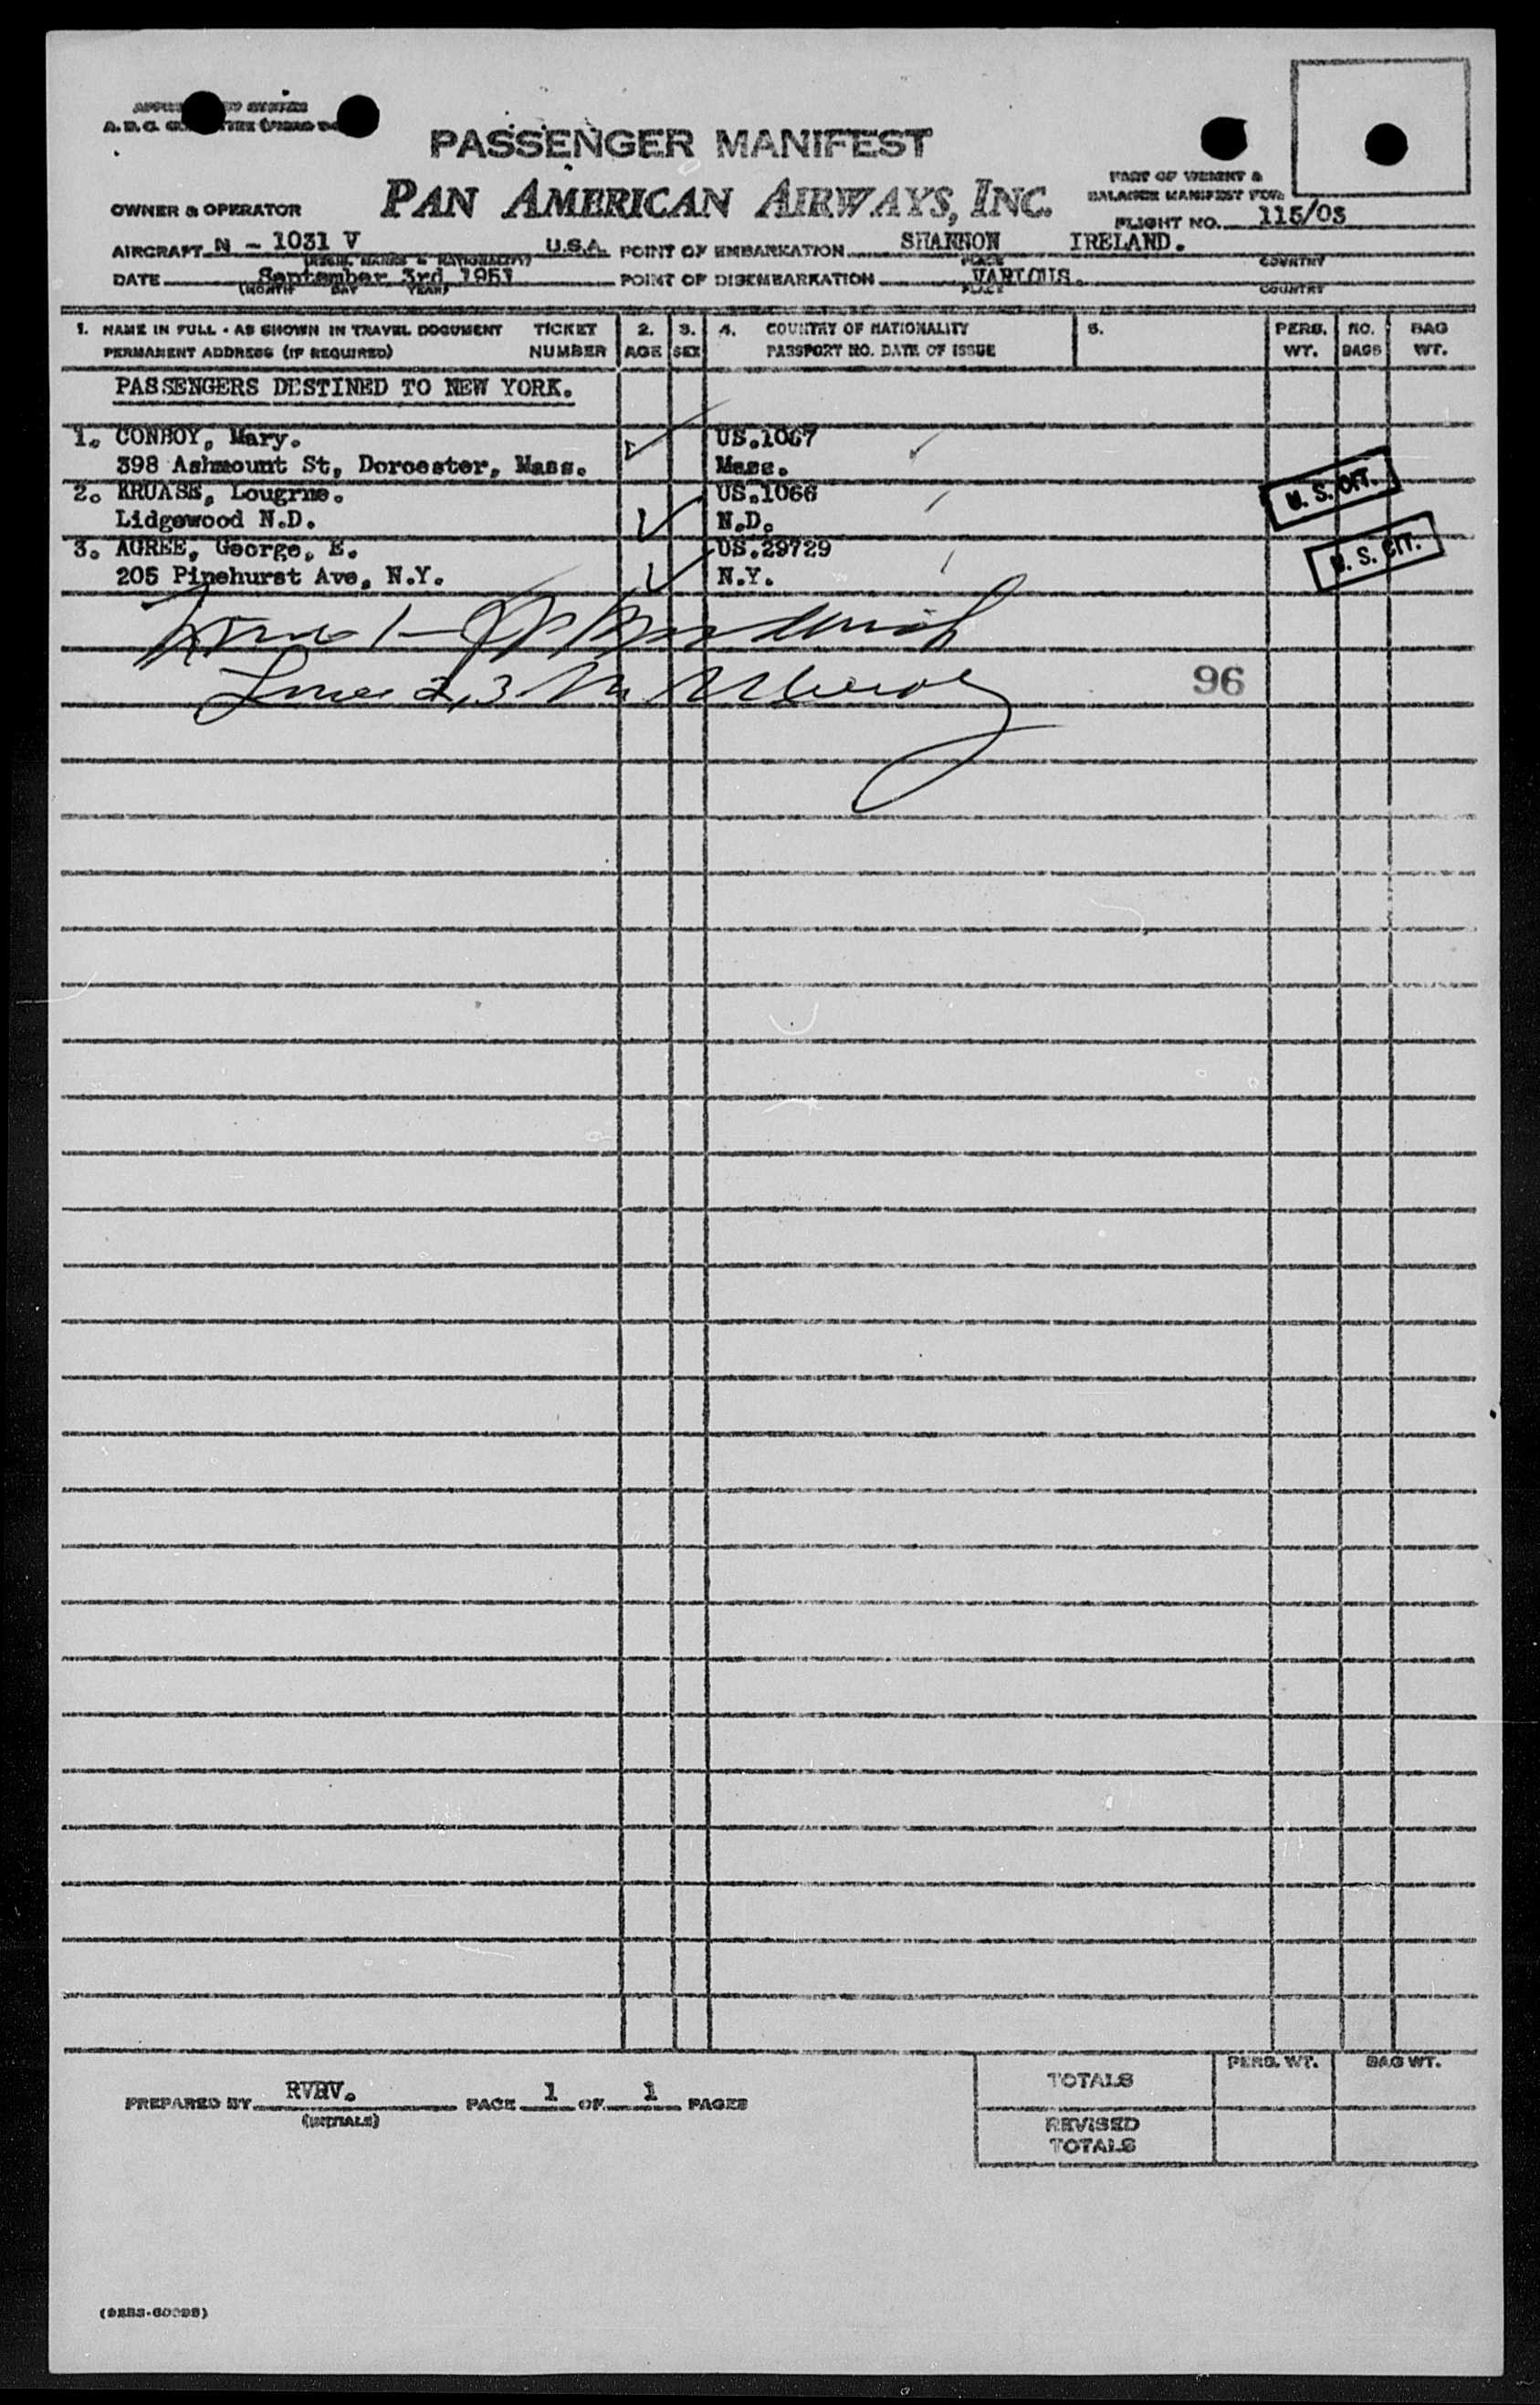 PASSENGER MANIFEST
PAN AMERICAN AIRWAYS, INC.
PART OF WEIGHT &
BALANCE MANIFEST FOR
OWNER & OPERATOR
FLIGHT NO. 115/03
AIRCRAFT N - 1031 V U.S.A. POINT OF EMBARKATION SHANNON IRELAND.
PLACE COUNTRY
DATE September 3rd 1951 POINT OF DISEMBARKATION VARIOUS.
(MONTH DAY YEAR) PLACE COUNTRY
1. NAME IN FULL - AS SHOWN IN TRAVEL DOCUMENT TICKET 2. 3. 4. COUNTRY OF NATIONALITY 5. PERS. NO. BAG
PERMANENT ADDRESS (IF REQUIRED) NUMBER AGE SEX PASSPORT NO. DATE OF ISSUE WT. BAGS WT.
PASSENGERS DESTINED TO NEW YORK.
1. CONBOY, Mary. US.1067
398 Ashmount St, Dorcester, Mass. Mass.
2. KRUASE, Lougrne. US.1066 U. S. CIT.
Lidgewood N.D. N.D.
3. AGREE, George, E. US.29729 U. S. CIT.
205 Pinehurst Ave, N.Y. N.Y.
Lines 2,3
96
PREPARED BY RVRV. PAGE 1 OF 1 PAGES
(INITIALS)
PERS. WT. BAG WT.
TOTALS
REVISED
TOTALS